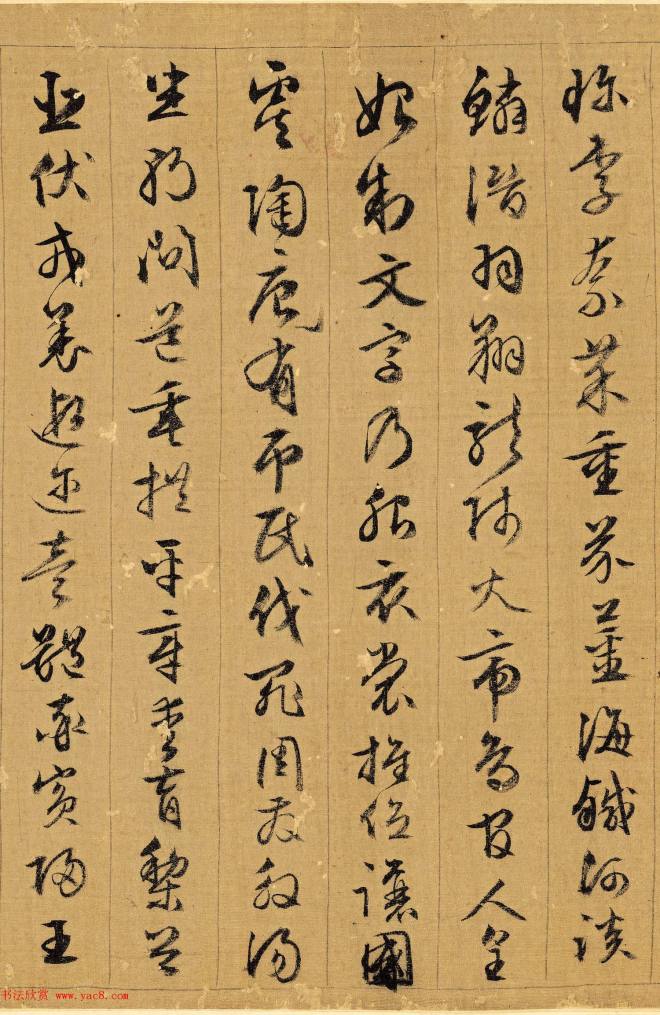 珎李奈菜重芥薑海鹹河淡
鱗潛羽翔龍師火帝鳥官人皇
始制文字乃服衣裳推位讓國
虞陶唐有弔民伐罪周發殷湯
坐朝問道垂拱平章愛育黎首
臣伏戎羌遐迩壹體率賓歸王
书法欣赏 www.yac8.com